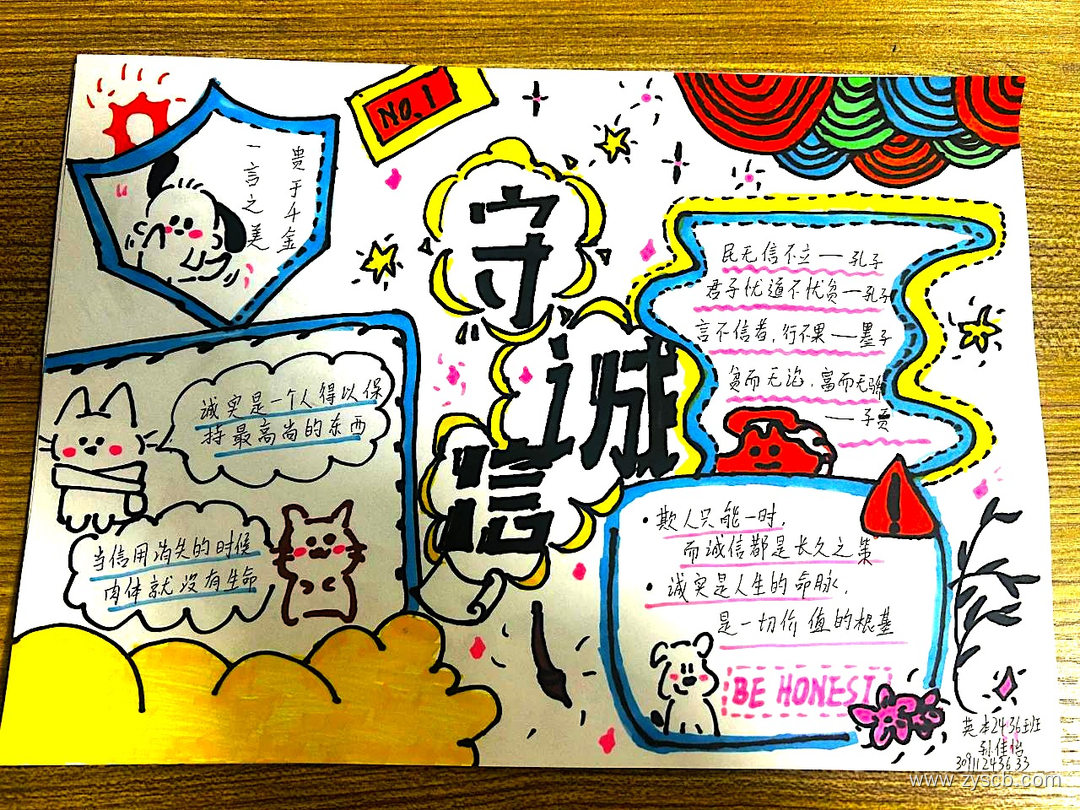 NO.1
一言之美
贵于千金
守
诚
信
民无信不立——孔子
君子忧道不忧贫—孔子
言不信者,行不果——墨子
贫而无谄,富而无骄
——子贡
诚实是一个人得以保
持最高尚的东西
当信用消失的时候
肉体就没有生命
•欺人只能一时,
而诚信都是长久之策
•诚实是人生的命脉,
是一切价值的根基
BE HONEST
英本2436班
孙佳怡
309112436 33
www.zyscb.com